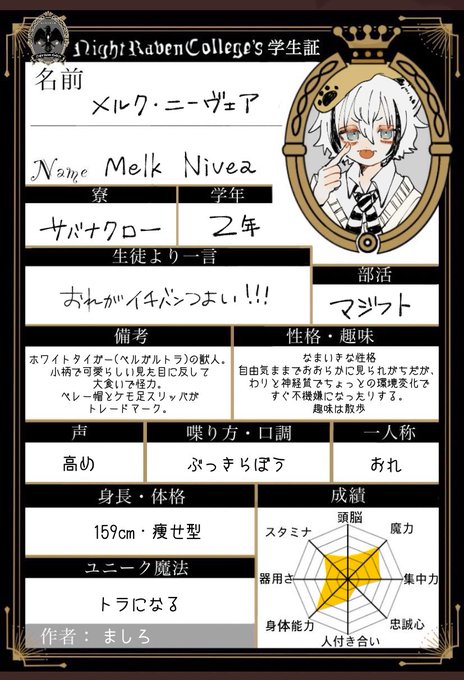 Night Raven College's 学生証
名前
メルク・ニーヴェア
Name Melk Nivea
寮
学年
サバナクロー
2年
生徒より一言
おれがイチバンつよい!!!
部活
マジフト
備考
性格・趣味
ホワイトタイガー(ベルガルトラ)の獣人。
小柄で可愛らしい見た目に反して
大食いで怪力。
ベレー帽とケモ足スリッパが
トレードマーク。
なまいきな性格
自由気ままでおおらかに見られがちだが、
わりと神経質でちょっとの環境変化で
すぐ不機嫌になったりする。
趣味は散歩
声
喋り方・口調
一人称
高め
ぶっきらぼう
おれ
身長・体格
成績
159cm・痩せ型
ユニーク魔法
トラになる
頭脳
魔力
集中力
忠誠心
人付き合い
身体能力
器用さ
スタミナ
作者: ましろ